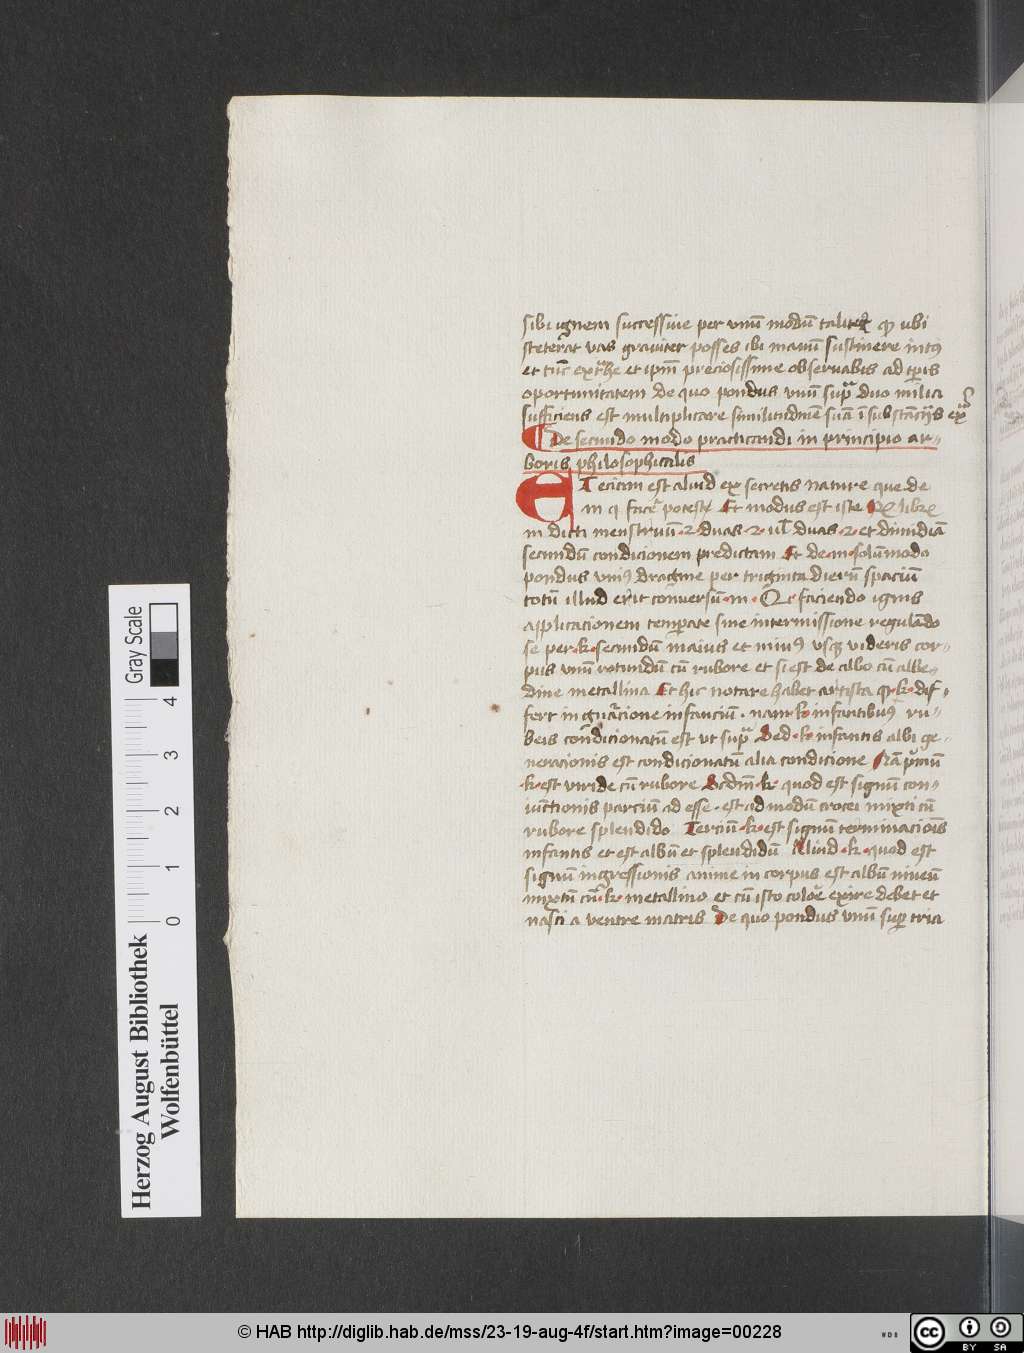 sibi ignem successiue per vnū modū taliter qͥ ubi
steterat vas grauiter posses ibi manū sustinere intꝰ
et tūc extrahe et ipm̄ preciosissime obseruabis ad tp̄is
oportunitatem de quo pondus vnū supra duo milia
sufficiens est multiplicare similitudinē suā ī substācijs ex
De secundo modo practicandi in principio ar-
boris philosophicalis
ETeciam est aliud ex secretis nature que de
m q facere potest Et modus est iste libr
m dicti menstruū · 2 · duas · 2 · ul duas · 2 · et dimidiā
secundū condicionem predictam Et de · m · solūmodo
pondus vniꝰ dragme per triginta dierū spaciū
totū illud erit conuersū · m · Et faciendo ignis
applicacionem temperate sine intermissione regulādo
se per · k · secundū maius et minꝰ usqꝫ videris cor-
pus vnū rotundū cū rubore et si est de albo cū albe-
dine metallina Et hic notare habet artista qͥ · k · dif-
fert in gn̄acione infanciū · nam k · infantibus ru-
beis condicionatū est vt supra Sed · k · infantis albi ge-
neracionis est condicionatū alia condicione Nā primū
· k · est viride cū rubore Scdm̄ · k · quod est signū con-
iunctionis parciū ad esse · est ad modū crocei mixti cū
rubore splendido Terciū · k · est signū terminaciois
infantis et est albū et splendidū Aliud · k · quod est
signū ingressionis anime in corpus est albū niueū
mixtū cū · k · metallino et cū isto colore exire debet et
nasci a ventre matris De quo pondus vnū super tria
Herzog August Bibliothek
Wolfenbüttel
0 1 2 3 4
Gray Scale
© HAB http://diglib.hab.de/mss/23-19-aug-4f/start.htm?image=00228
WDB
cc BY SA